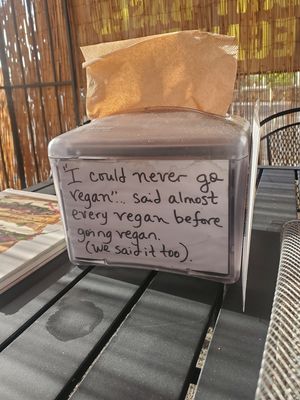 "I could never go
vegan"... said almost
every vegan before
going vegan.
(we said it too).